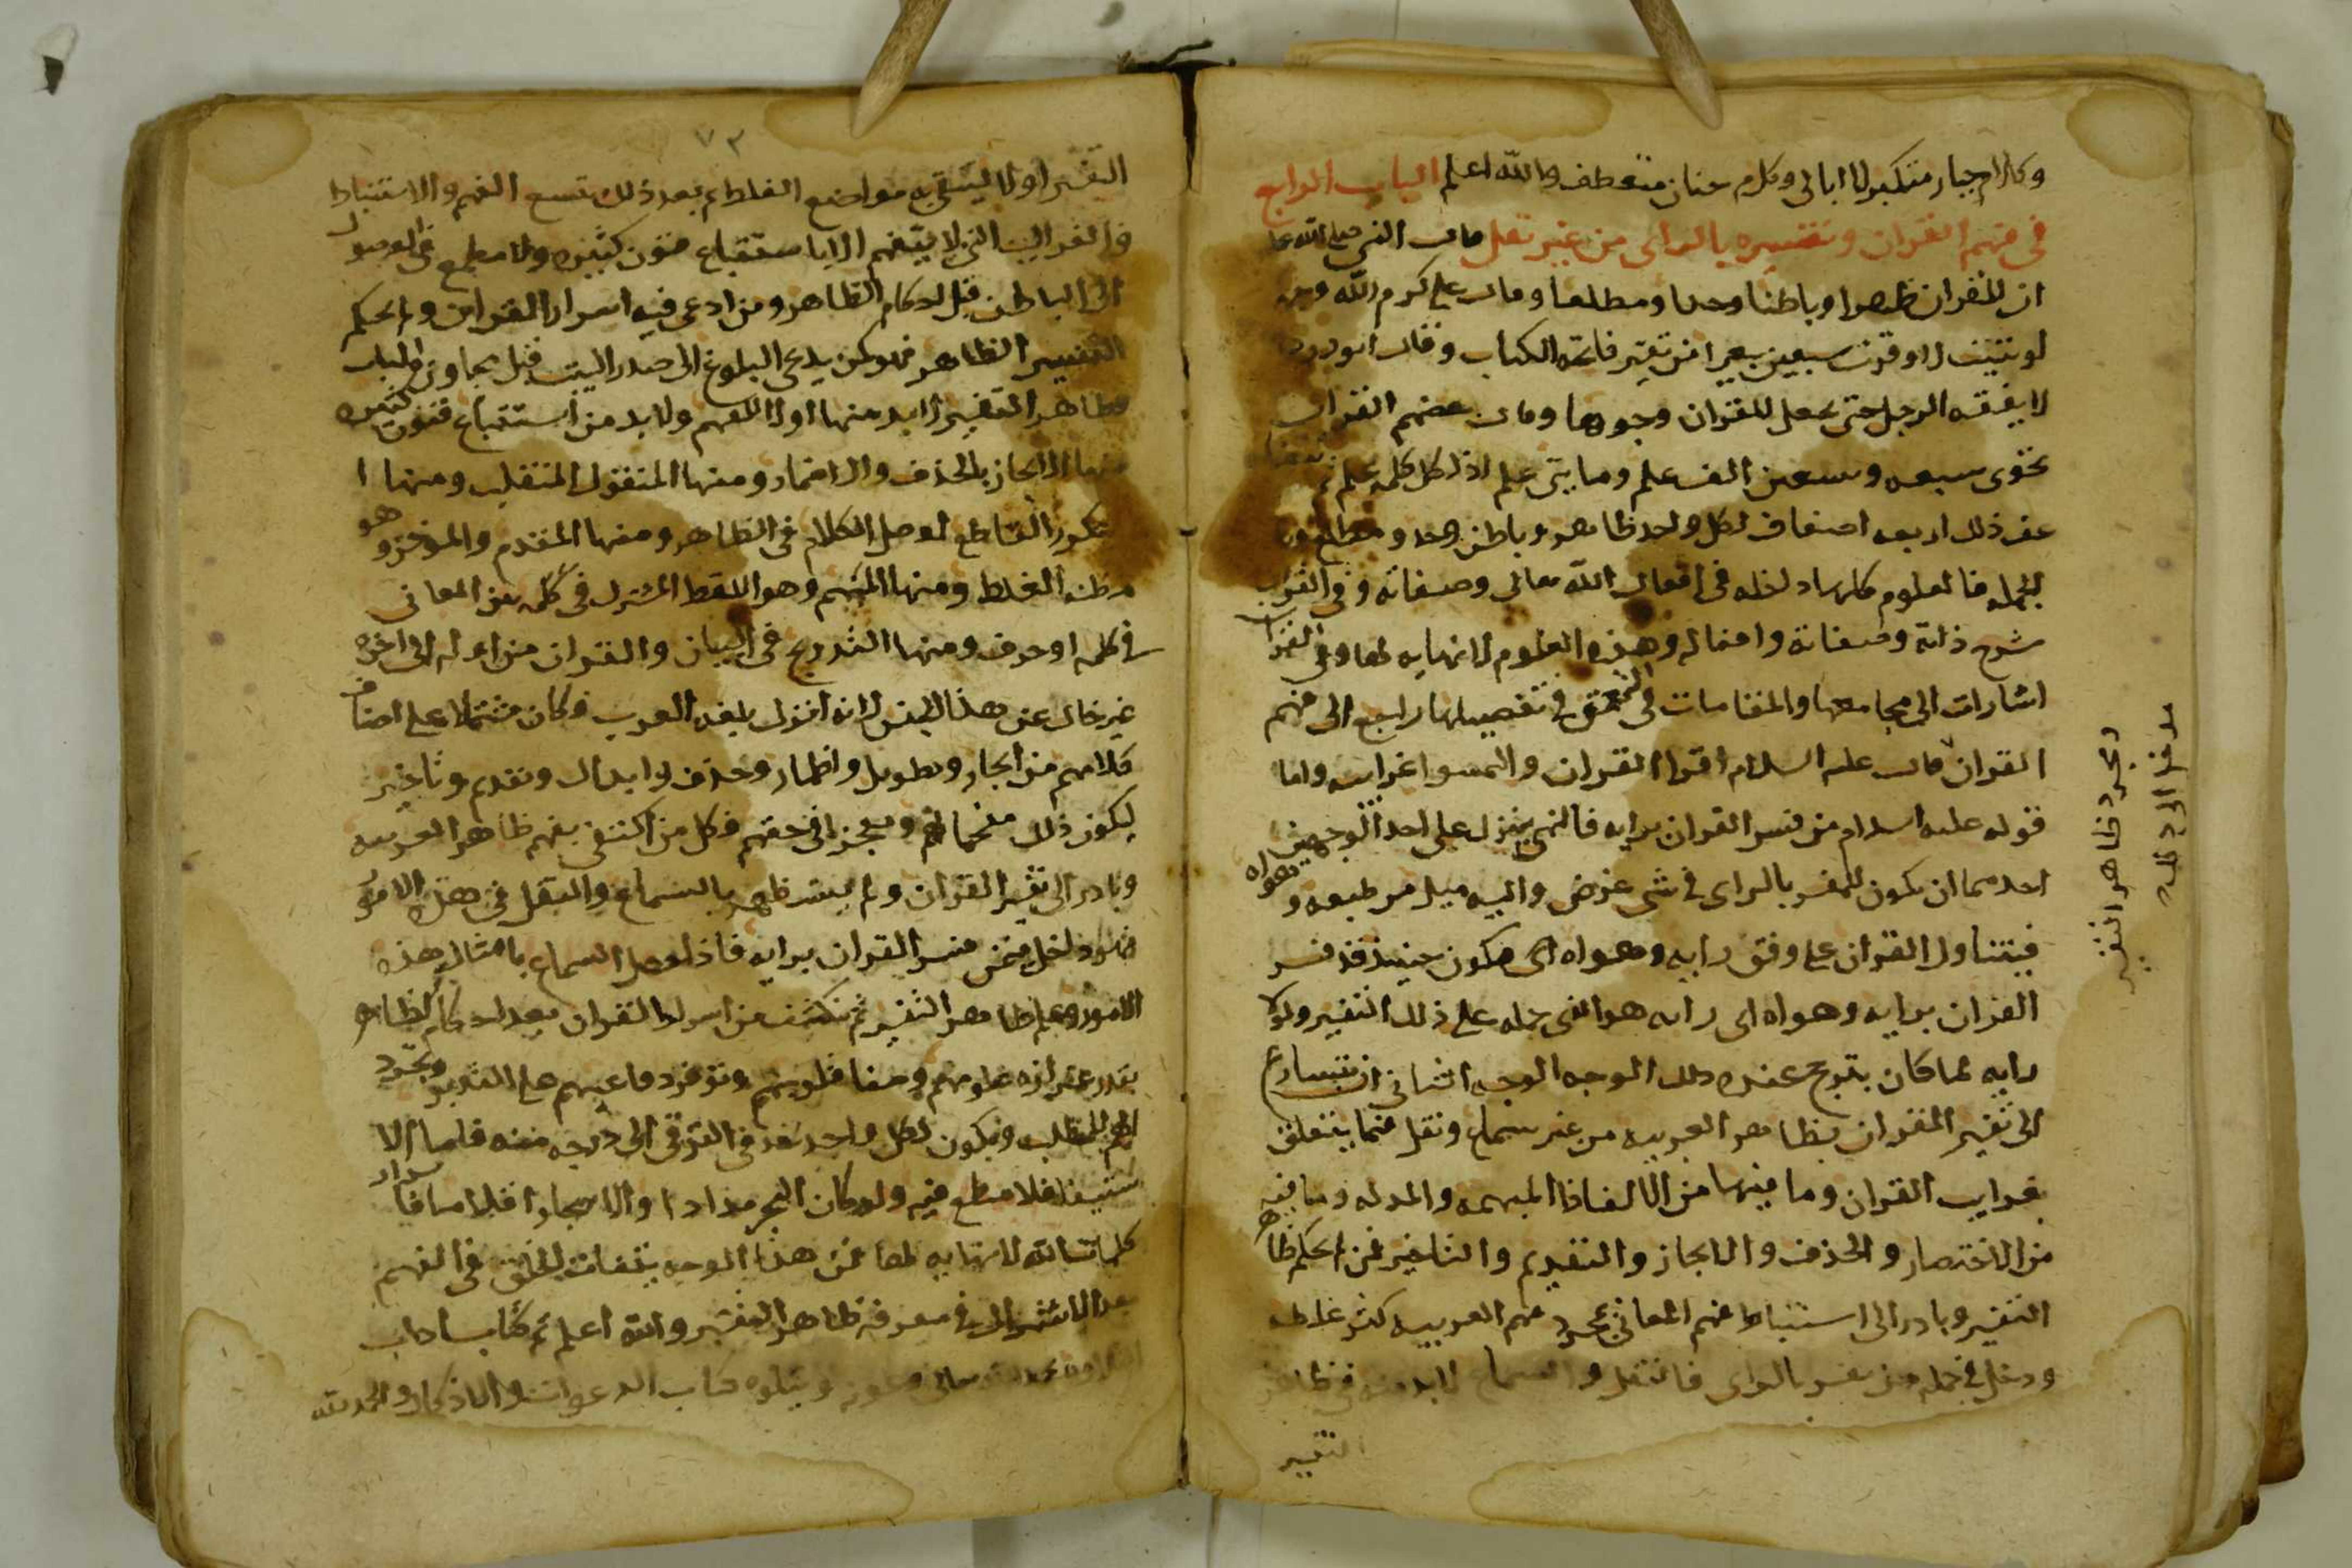 وكلام جبار متكبر لا ابالى وكلام حنان متعطف والله اعلم الباب الرابع
فى فهم القران وتفسيره بالراى من غير نقل قال النبى صلى الله عليه
ان للقران ظهرا وباطنا وحدا ومطلعا وقال على كرم الله وجهه
لو شئت لاوقرت سبعين بعيرا من تفسير فاتحة الكتاب وقال ابو دردا
لا يفقه الرجل حتى يجعل للقران وجوها وقال بعضهم القران
يحوى سبعه وسبعين الف علم ومايتى علم اذ لكل كلمة علم ثم يتضاعف
عف ذلك اربعه اضعاف لكل واحد ظاهر وباطن وحد ومطلع و
بالجمله فالعلوم كلها داخله فى افعال الله تعالى وصفاته وفى القران
شرح ذاته وصفاته وافعاله وهذه العلوم لا نهايه لها وفى القران
اشارات الى مجامعها والمقامات فى التعمق فى تفصيلها راجع الى فهم
القران قال عليه السلام اقرا القران والتمسوا غرايبه واما
قوله عليه السلام من فسر القران برايه فالنهى ينزل على احد الوجهين
احدهما ان يكون للمفسر بالراى فى شى غرض واليه ميل من طبعه وهواه
فيتناول القران على وفق رايه وهواه اى فيكون حينيذ قد فسر
القران برايه وهواه اى رايه هو الذى حمله على ذلك التفسير ولولا
رايه لما كان يترجح عنده ذلك الوجه الوجه الثانى ان يتسارع
الى تفسير القران بظاهر العربيه من غير سماع ونقل فيما يتعلق
بغرايب القران وما فيها من الالفاظ المبهمه والمبدله وما فيه
من الاختصار والحذف والايجاز والتقديم والتاخير فمن لم يحكم ظاهر
التفسير وبادر الى استنباط فهم المعانى بمجرد فهم العربيه كثر غلطه
ودخل فى جمله من يفسر بالراى فالنقل والسماع لابد منه فى ظاهر
التفسير
ومجرد ظاهر التفسير
٧٣
التفسير اولا ليتقى به مواضع الغلط ثم بعد ذلك يتسع الفهم والاستنباط
والغرايب التى لا يتفهم الا باستتباع فنون كثيره ولا مطمع فى الوصول
الى الباطن قبل احكام الظاهر ومن ادعى فيه اسرار القران ولم يحكم
التفسير الظاهر فهو كمن يدعى البلوغ الى صدر البيت قبل مجاوزه الباب
فظاهر التفسير لا بد منها اولا للفهم ولا بد من استتباع فنون كثيره
منها الايجاز بالحذف والاضمار ومنها المنقول المنقلب ومنها ا
لمكرر القاطع لوصل الكلام فى الظاهر ومنها المقدم والموخر وهو
مظنه الغلط ومنها المبهم وهو اللفظ المشترك فى كلمه بين المعانى
فى كلمه او حرف ومنها التدريج فى البيان والقران من اوله الى اخره
غير خال عن هذا الجنس لانه انزل بلغه العرب فكان مشتملا على اصناف
كلامهم من ايجاز وتطويل واضمار وحذف وابدال وتقديم وتاخير
ليكون ذلك مفحما لهم ومعجزا فى حقهم فكل من اكتفى بفهم ظاهر العربيه
وبادر الى تفسير القران ولم يستظهر بالسماع والنقل فى هذه الامور
فهو داخل فيمن فسر القران برايه فاذا حصل السماع بامثال هذه
الامور وعلم ظاهر التفسير ثم تكشف من اسرار القران بعد احكام الظاهر
بقدر غزاره علومهم وصفا قلوبهم وتوفر دواعيهم على التدبر وتجرد
هم للطلب ويكون لكل واحد حد فى الترقى الى درجه منه فاما الا
ستيفا فلا مطمع فيه ولو كان البحر مدادا والاشجار اقلاما فاسرار
كلمات الله لا نهايه لها فمن هذا الوجه يتفاوت الخلق فى الفهم
بعد الاشتراك فى معرفه ظاهر التفسير والله اعلم تم كتاب اداب
التلاوه بحمد الله تعالى وعونه ويتلوه كتاب الدعوات والاذكار والحمد لله